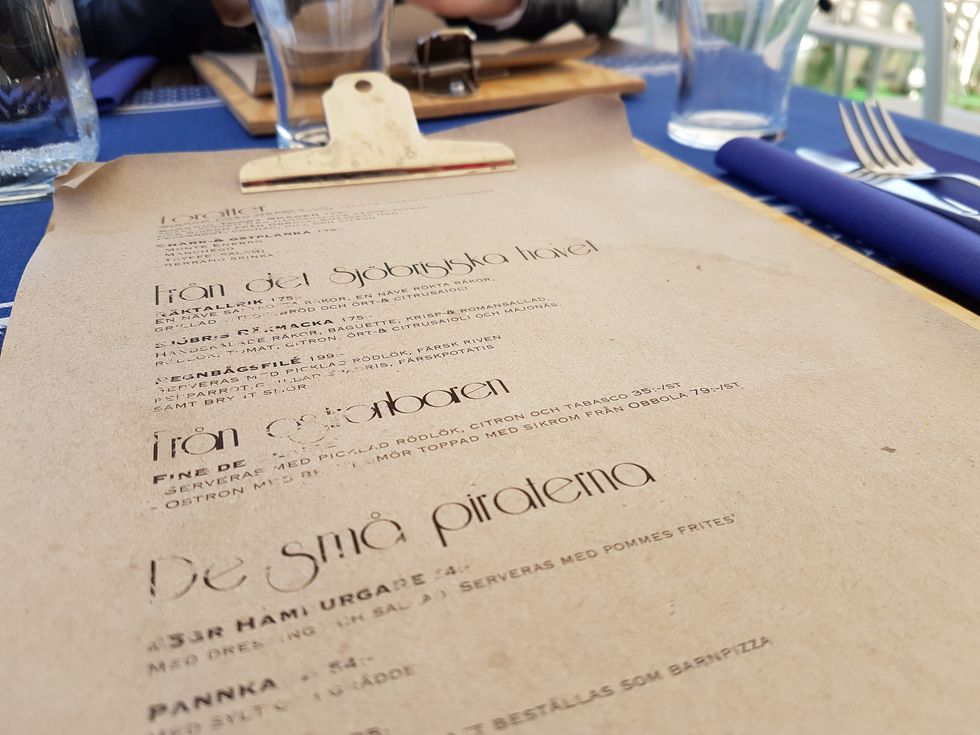 Förrätter
CHARK- & OSTPLANKA 179:-
MONTE ENEBRO
MANCHEGO
TRYFFELSALAMI
SERRANO SKINKA
Från det Sjöbrisiska havet
RÄKTALLRIK 175:-
EN NÄVE RÄKOR, EN NÄVE RÖKTA RÄKOR,
BRÖD OCH ÖRT- & CITRUSAIOLI
SJÖBRIS RÄKMACKA 175:-
HANDSKALADE RÄKOR, BAGUETTE, KRISP- & ROMANSALLAD,
RÖDLÖK, TOMAT, CITRON, ÖRT- & CITRUSAIOLI OCH MAJONÄS,
REGNBÅGSFILÉ 199:-
SERVERAS MED PICKLAD RÖDLÖK, FÄRSK RIVEN
PEPPARROT, GRILLAD SPARRIS, FÄRSKPOTATIS
SAMT BRYNT SMÖR
Från Ostronbaren
FINE DE
- SERVERAS MED PICKLAD RÖDLÖK, CITRON OCH TABASCO 35:-/ST
- OSTRON MED SMÖR TOPPAD MED SIKROM FRÅN OBBOLA 79:-/ST
De små piraterna
HAMBURGARE
MED DRESSING OCH SALLAD SERVERAS MED POMMES FRITES'
PANNKA 54:-
MED SYLT OCH GRÄDDE
BESTÄLLAS SOM BARNPIZZA